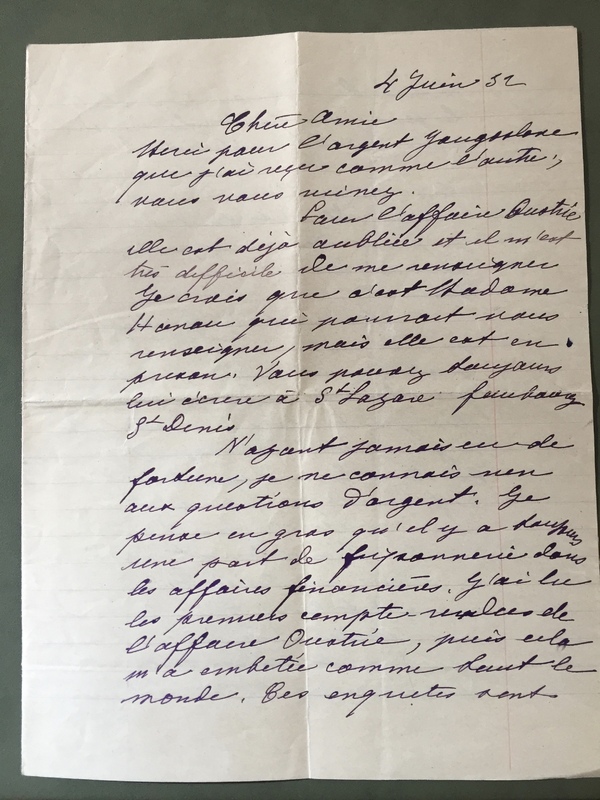 4 Juin 32
Chère Amie
Merci pour l'argent Yougoslave
que j'ai reçu comme l'autre,
vous vous ruinez.
Pour l'affaire Oustric
elle est déjà oubliée et il m'est
très difficile de me renseigner
Je crois que c'est Madame
Hanau qui pourrait vous
renseigner, mais elle est en
prison. Vous pouvez toujours
lui écrire à St Lazare faubourg
St Denis
N'ayant jamais eu de
fortune, je ne connais rien
aux questions d'argent. Je
pense en gros qu'il y a toujours
une part de friponnerie dans
les affaires financières. J'ai lu
les premiers compte-rendus de
l'affaire Oustric, puis cela
m'a embetée comme tout le
monde. Ces enquetes sont